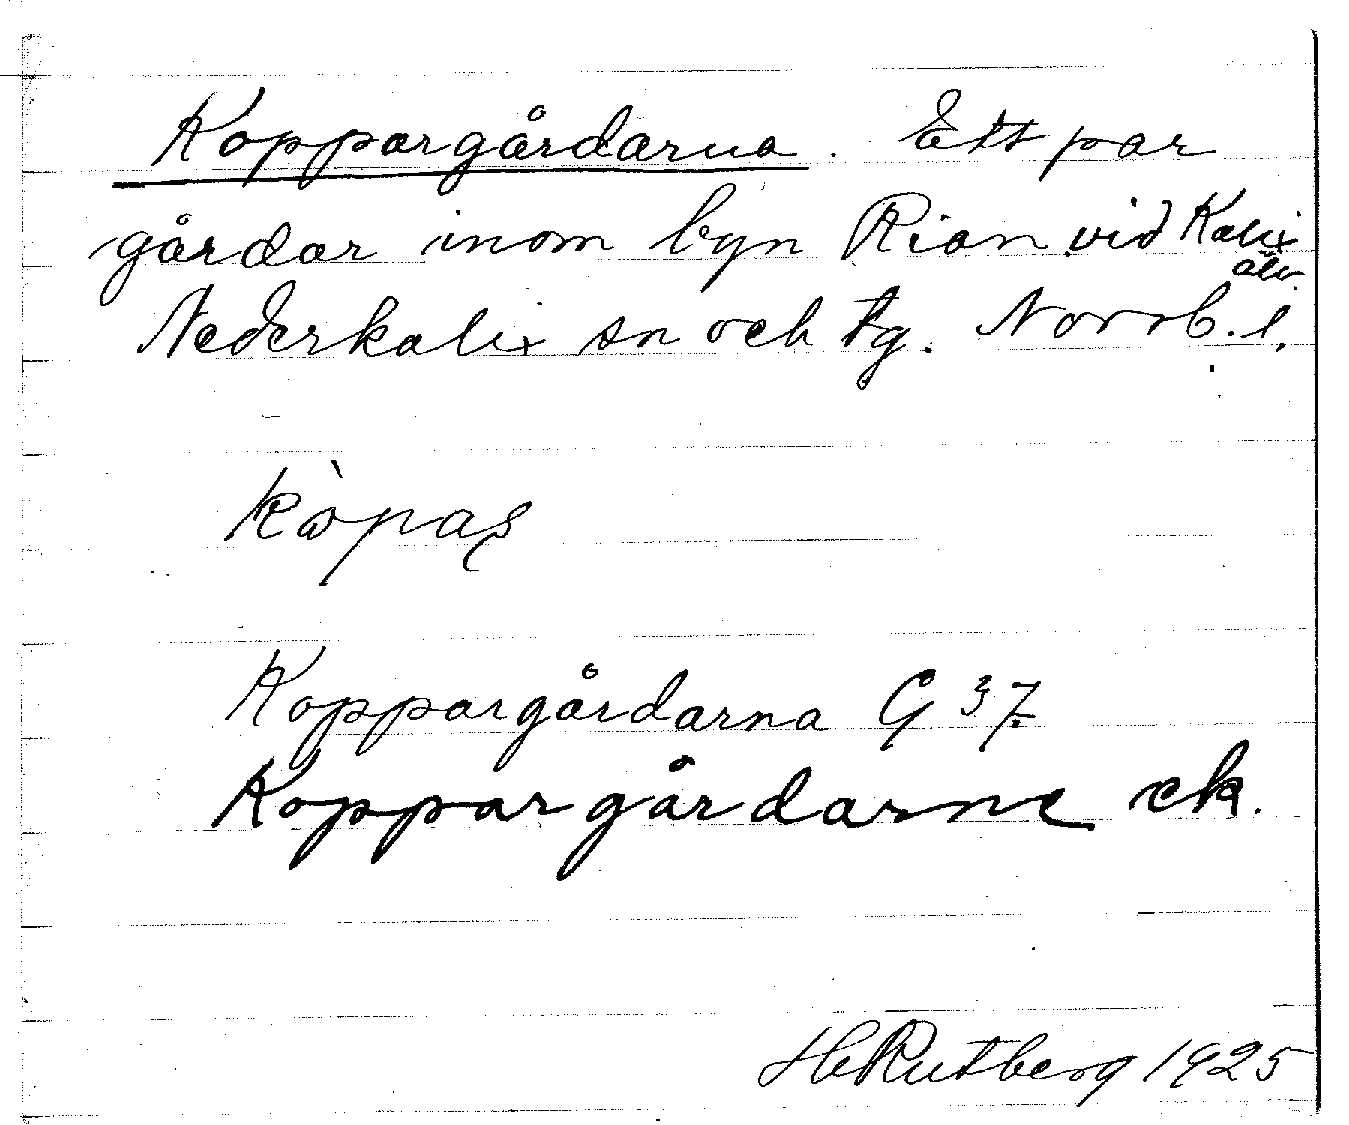 Koppargårdarna. Ett par
gårdar inom byn Rian vid Kalix
älv.
Nederkalix sn och tg. Norrb. l.
Koppargårdarna G 37
Koppargårdarne ek.
H Rutberg 1925